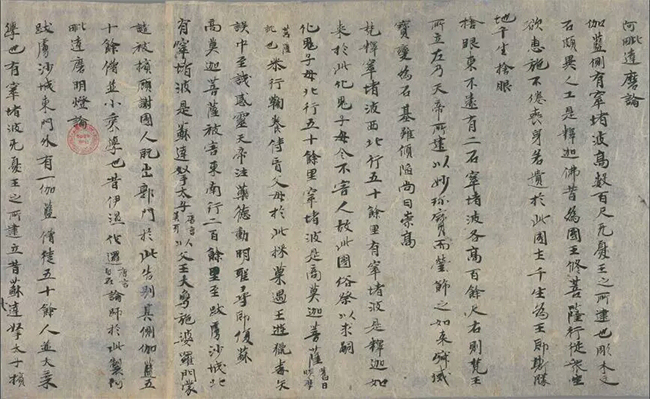 阿毗達磨論
伽藍側有窣堵波高數百尺无憂王之所建也彫木文
石頗異人工是釋迦佛昔為國王修菩薩行從眾生
欲惠施不倦喪身若遺於此國土千生為王即斯勝
地千生捨眼
捨眼東不遠有二石窣堵波各高百餘尺右則梵王
所立左乃天帝所建以妙珍寶而瑩飾之如來寂滅
寶變為石基雖傾陷尚曰崇高
梵釋窣堵波西北行五十餘里有窣堵波是釋迦如
來於此化鬼子母令不害人故此國俗祭以求嗣
化鬼子母北行五十餘里窣堵波是商莫迦菩薩舊曰睒摩
菩薩訛也恭行鞠養侍盲父母於此採菓遇王遊獵毒矢
誤中至誠感靈天帝注藥德動明聖尋即復蘇
商莫迦菩薩被害東南行二百餘里至跋虜沙城北
有窣堵波是蘇達拏太子唐言善牙以父王大象施婆羅門蒙
譴被擯顧謝國人既出郭門於此告別其側伽藍五
十餘僧並小乘學也昔伊濕伐邏唐言自在論師於此製阿
毗達磨明燈論
跋虜沙城東門外有一伽藍僧徒五十餘人並大乘
學也有窣堵波无憂王之所建立昔蘇達拏太子擯